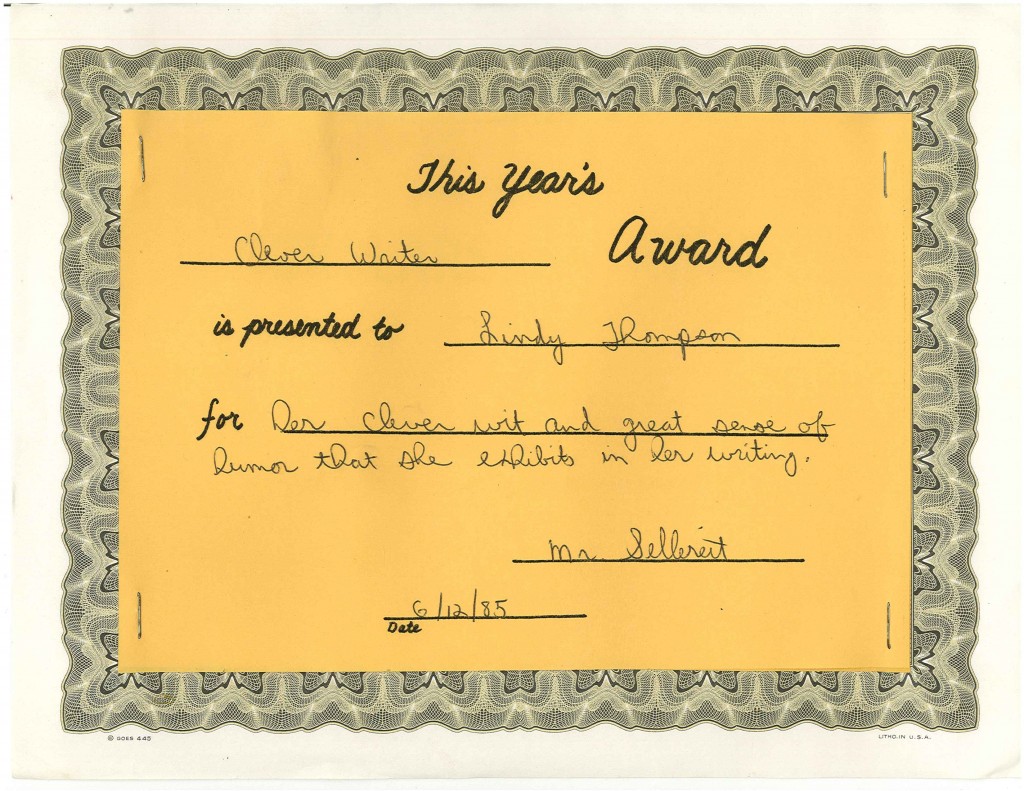 This Year's
Clever Writer Award
is presented to Lindy Thompson
for her clever wit and great sense of
humor that she exhibits in her writing.
Mr Sellereit
6/12/85
Date
© GOES 445 LITHO. IN U.S.A.